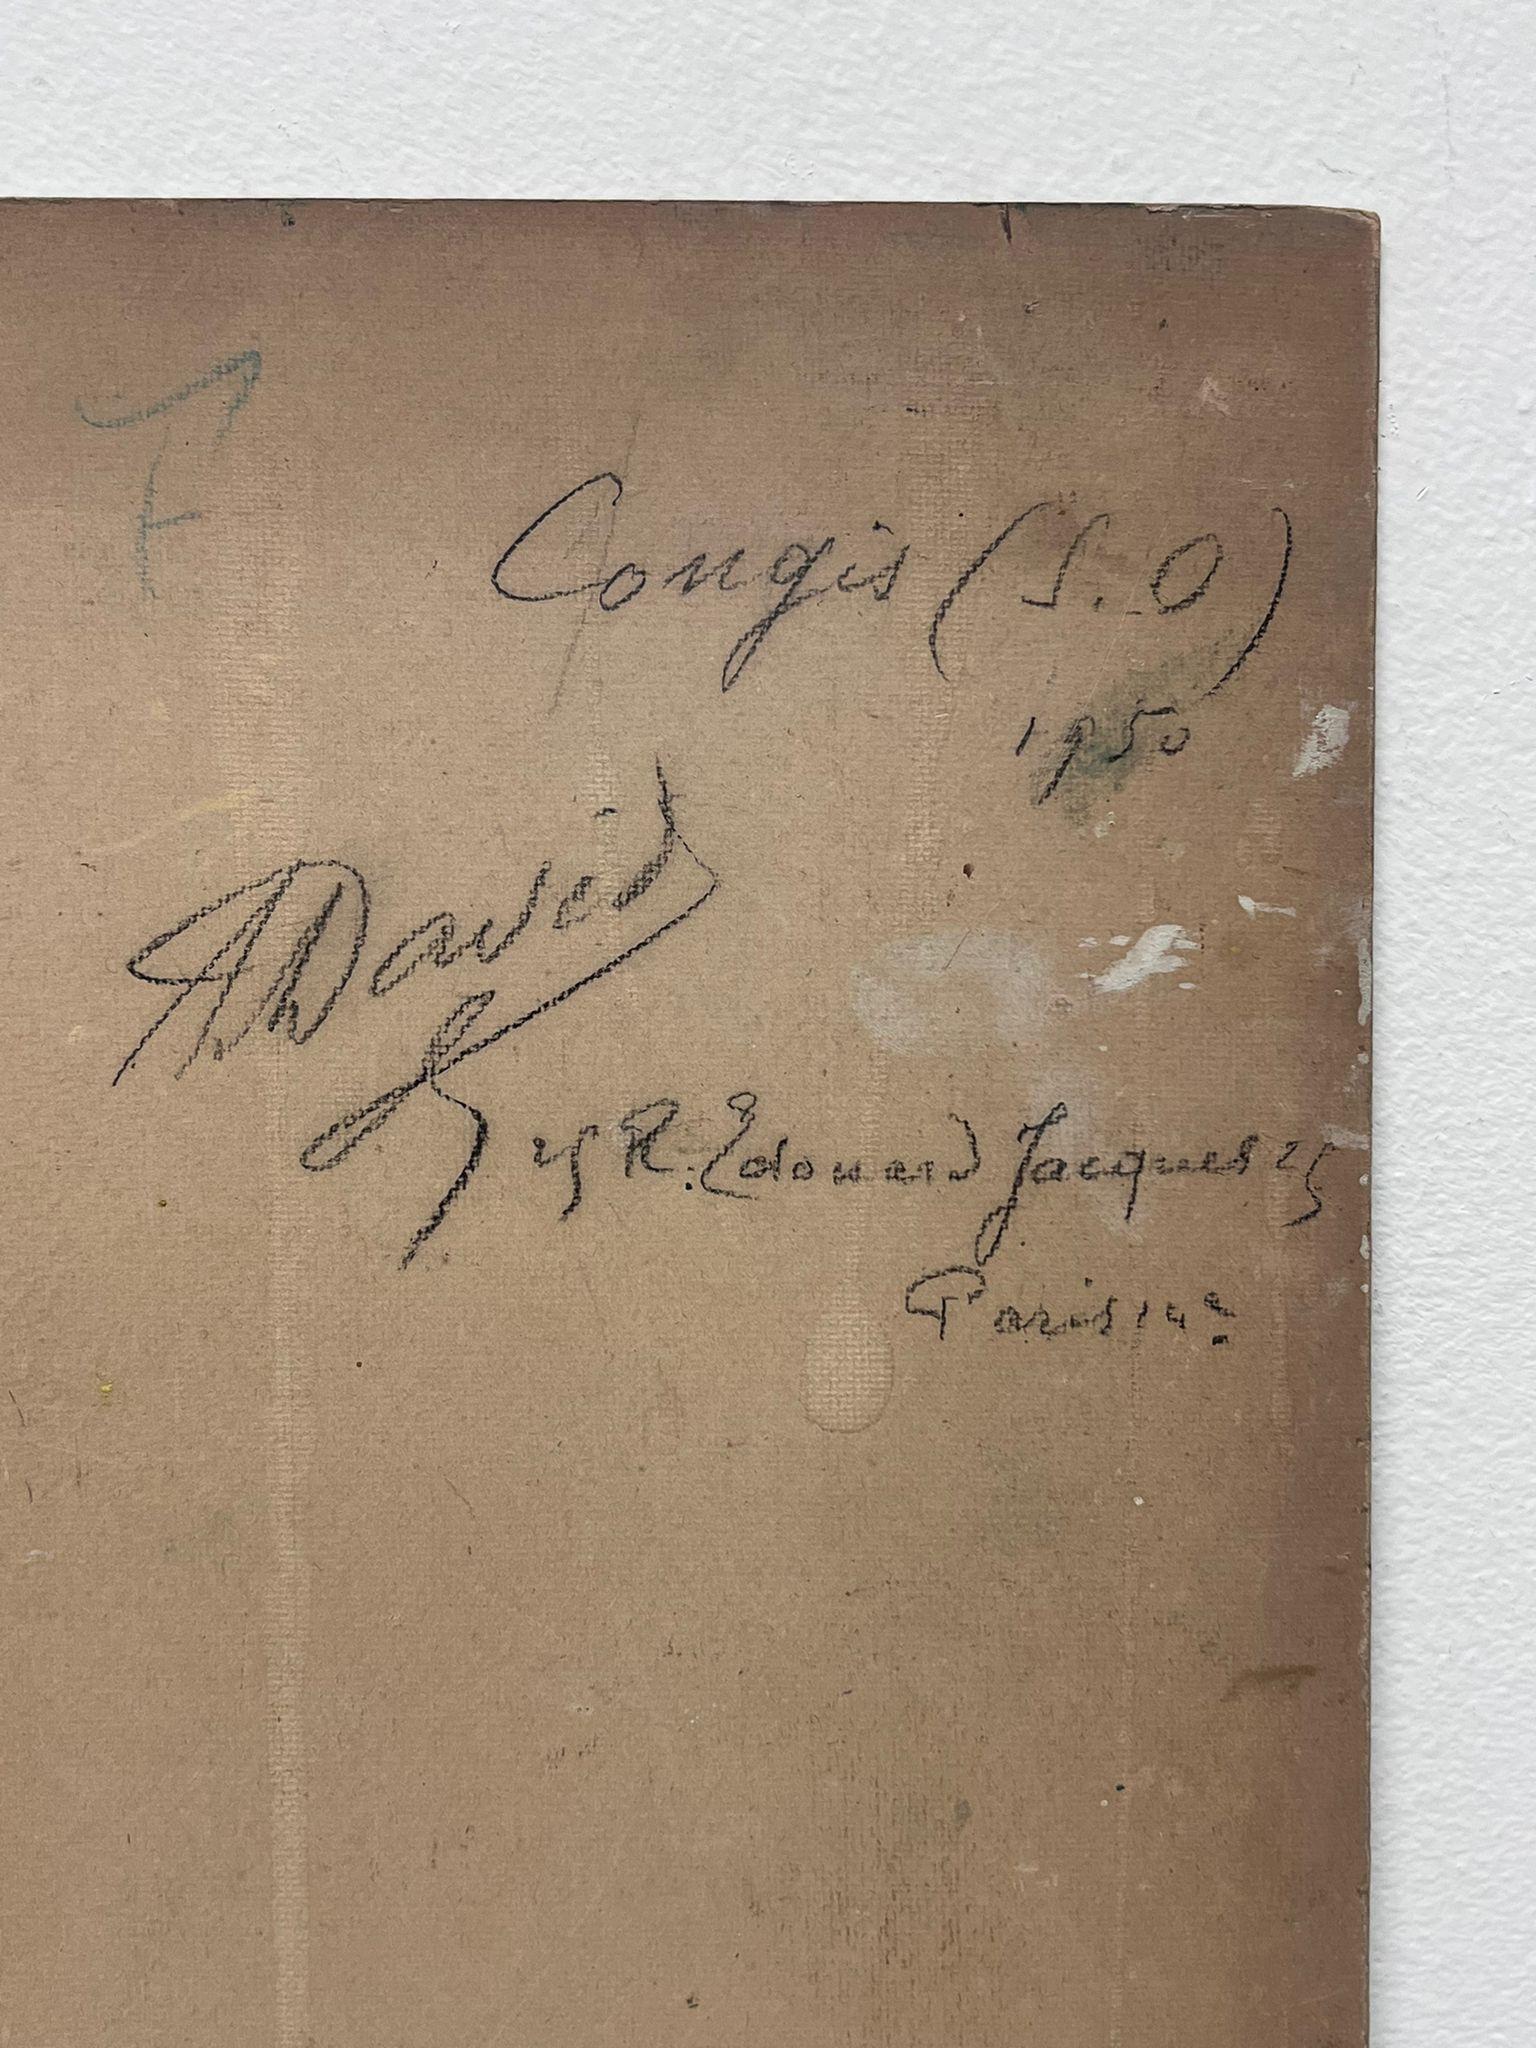 Congis (S.-O)
1950
David
25 R. Edouard Jacques 25
Paris 14e